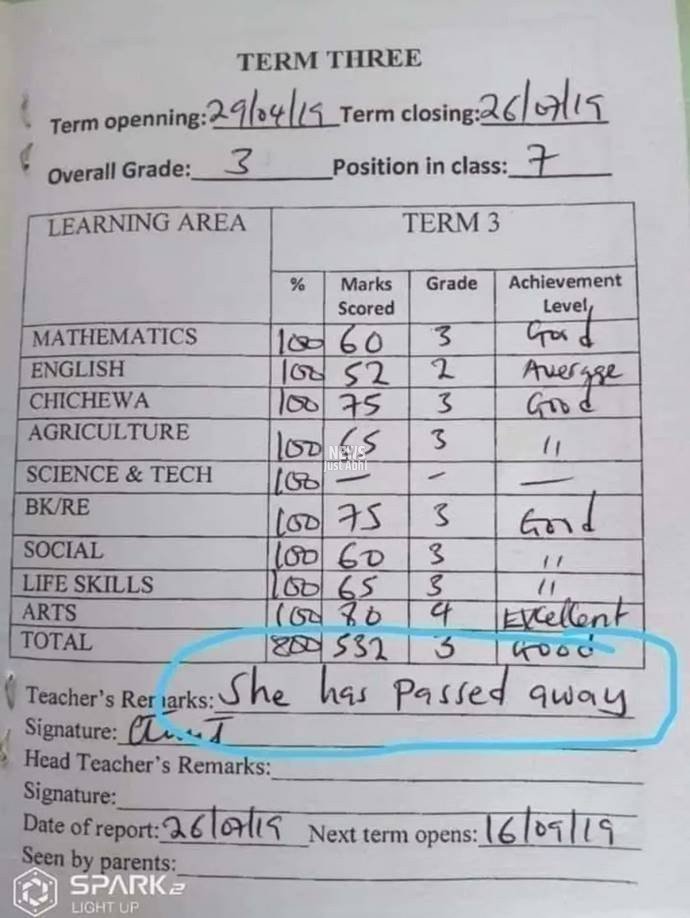 TERM THREE
Term openning: 29/04/19 Term closing: 26/07/19
Overall Grade: 3 Position in class: 7
LEARNING AREA TERM 3
% Marks Scored Grade Achievement Level
MATHEMATICS 100 60 3 Good
ENGLISH 100 52 2 Average
CHICHEWA 100 75 3 Good
AGRICULTURE 100 65 3 "
NEWS
Just Abhi
SCIENCE & TECH 100 — - —
BK/RE 100 75 3 Good
SOCIAL 100 60 3 "
LIFE SKILLS 100 65 3 "
ARTS 100 80 4 Excellent
TOTAL 800 532 3 Good
Teacher's Remarks: She has passed away
Signature:
Head Teacher's Remarks:
Signature:
Date of report: 26/07/19 Next term opens: 16/09/19
Seen by parents:
SPARK 2
LIGHT UP